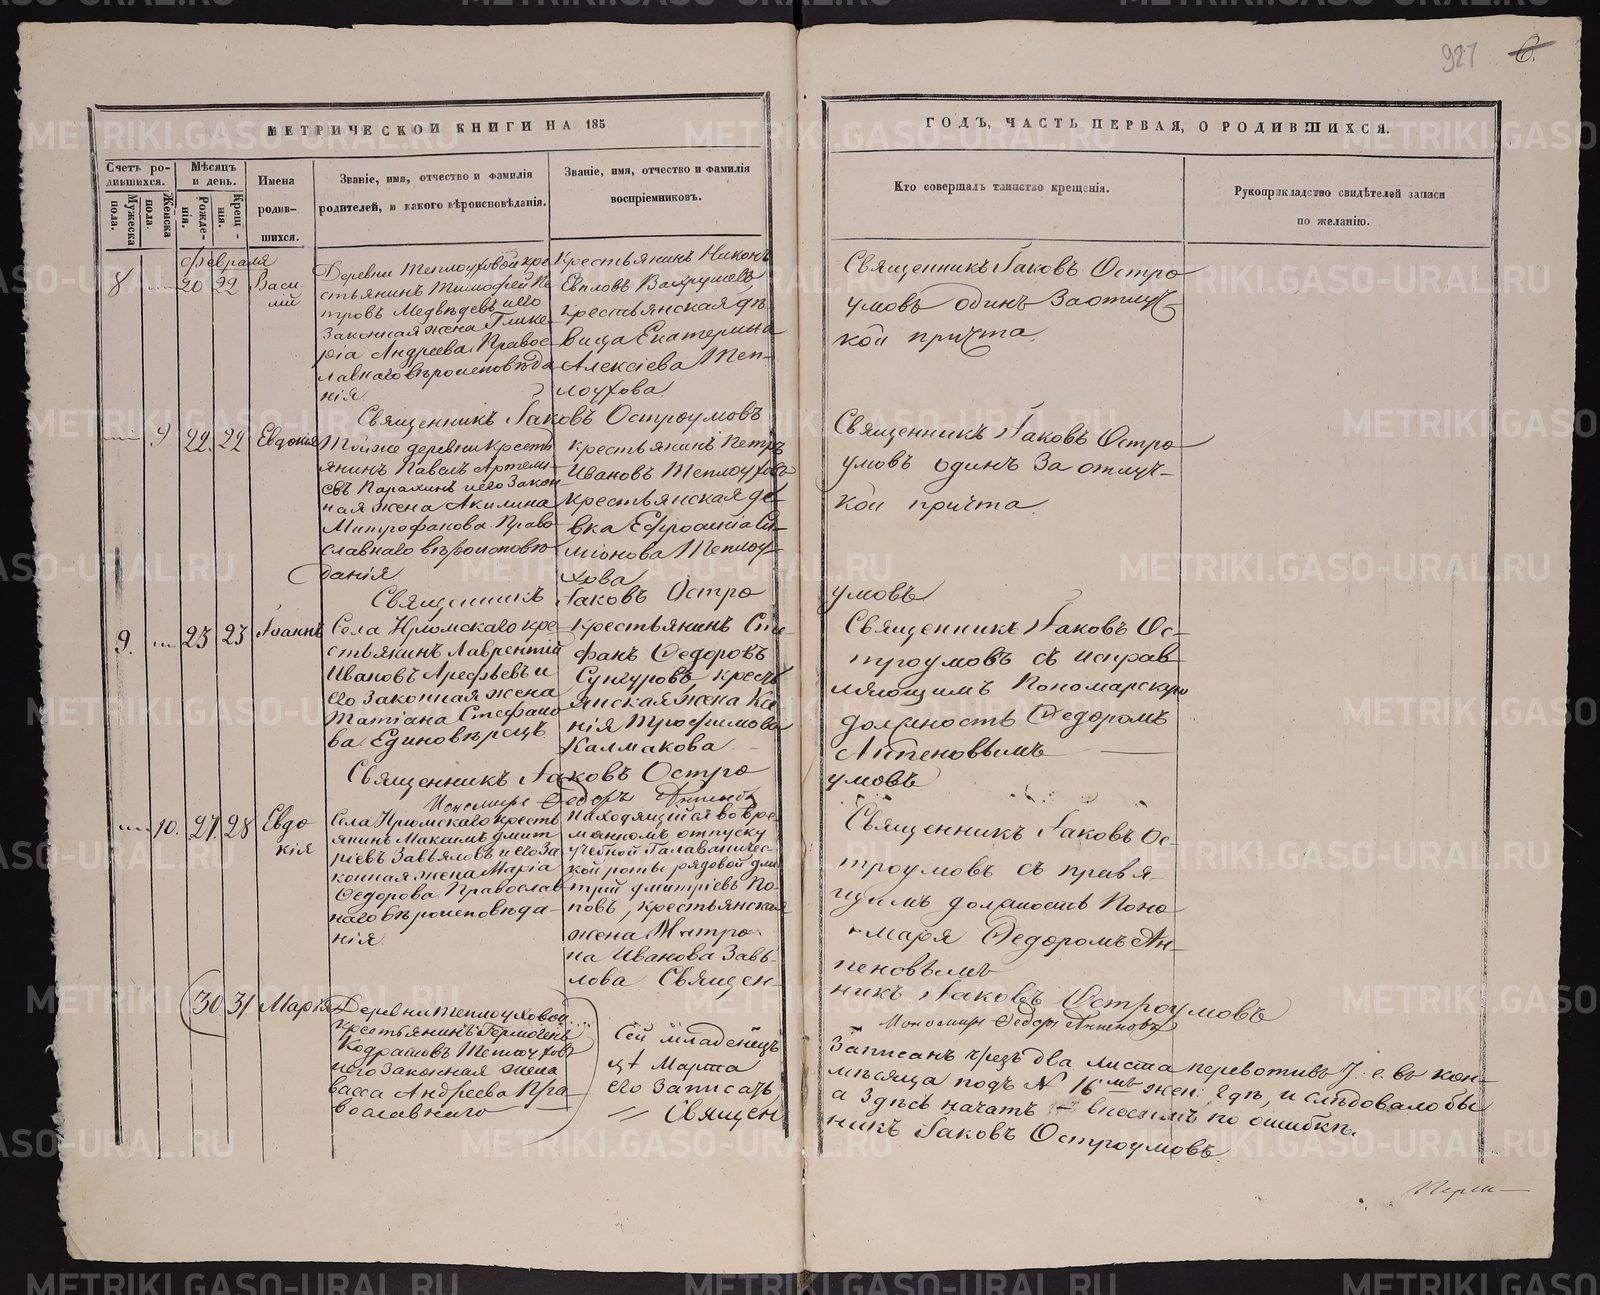 927 6.
МЕТРИЧЕСКОЙ КНИГИ НА 185
ГОДЪ, ЧАСТЬ ПЕРВАЯ, О РОДИВШИХСЯ.
Счетъ ро-
дившихся.
Мужеска
пола.
Женска
пола.
Мѣсяцъ
и день.
Рожде-
нія.
Крещ-
нія.
Имена
родив-
шихся.
Званіе, имя, отчество и фамилія
родителей, и какого вѣроисповѣданія.
Званіе, имя, отчество и фамилія
воспріемниковъ.
Кто совершалъ таинство крещенія.
Рукоприкладство свидѣтелей записи
по желанію.
Февраля
8 20 22 Васи-
лій
Деревни Теплоуховой кре
стьянинъ Тимофей Пе
тровъ Медвѣдевъ и его
Законная жена Глике
рія Андреева Правос
лавнаго вѣроисповѣда
нія
Крестьянинъ Никонъ
Вахрушевъ
крестьянская дѣ
вица Екатерина
Алексіева Теп-
лоухова
Священникъ Іаковъ Остро
умовъ одинъ За отлуч
кой причта
Священникъ Іаковъ Остроумовъ
9 22 22 Евдокія
Тойже деревни кресть
янинъ Павелъ Артемі
евъ Парахинъ и его Закон
ная жена Акилина
Митрофанова Право
славнаго вѣроисповѣ
данія
крестьянинъ Петръ
Ивановъ Теплоуховъ
крестьянская дѣ
вка Ефросинія Си-
міонова Теплоу-
хова
Священникъ Іаковъ Остро
умовъ одинъ За отлуч-
кой причта
Священникъ Іаковъ Остро
умовъ
9. 23 23 Іоаннъ
Села Кромскаго кре
стьянинъ Лаврентій
Ивановъ Арефьевъ и
его Законная жена
Татіана Стефано
ва Единовѣрецъ
крестьянинъ Сте-
фанъ Федоровъ
Сунгуровъ, кресть
янская жена Ксе
нія Трофимова
Калмакова
Священникъ Іаковъ Ос-
троумовъ съ исправ
ляющимъ Пономарскую
должность Федоромъ
Антеновымъ
Священникъ Іаковъ Остро
умовъ
Пономарь Федоръ Антеновъ
10. 27. 28 Евдо
кія
Села Кромскаго кресть
янинъ Максимъ Дмит
ріевъ Завьяловъ и его За
конная жена Марія
Федорова Православ
наго вѣроисповѣда-
нія
Находящійся во вре
мянномъ отпуску
учебной Галаваничес-
кой роты рядовой Дми
трій Дмитріевъ По-
повъ, крестьянская
жена Матро
на Иванова Завь-
лова Священ
Священникъ Іаковъ Ос-
троумовъ съ правя-
щимъ должность Поно
маря Федоромъ Ан-
теновымъ
никъ Іаковъ Остроумовъ
Пономарь Федоръ Антеновъ
30 31 Марія
Деревни Теплоуховой
крестьянинъ Гермогенъ
Кодратовъ Теплоуховъ
и его Законная жена
васса Андреева Пра
вославнаго
Сей младенецъ
Марта
его Записать
Священ
Записанъ чрезъ два листа перевотивъ т. е. въ кон-
мѣсяца подъ № 16мъ жен: гдѣ, и слѣдовало бы
а Здѣсь начатъ вносимъ по ошибкѣ.
никъ Іаковъ Остроумовъ